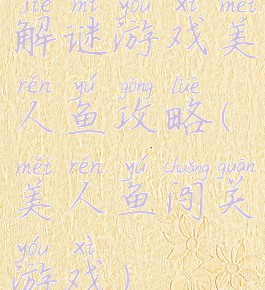 jiě mí yóu xì měi
解谜游戏美
rén yú gōng lüè
人鱼攻略(
měi rén yú chuǎng guān
美人鱼闯关
yóu xì
游戏)